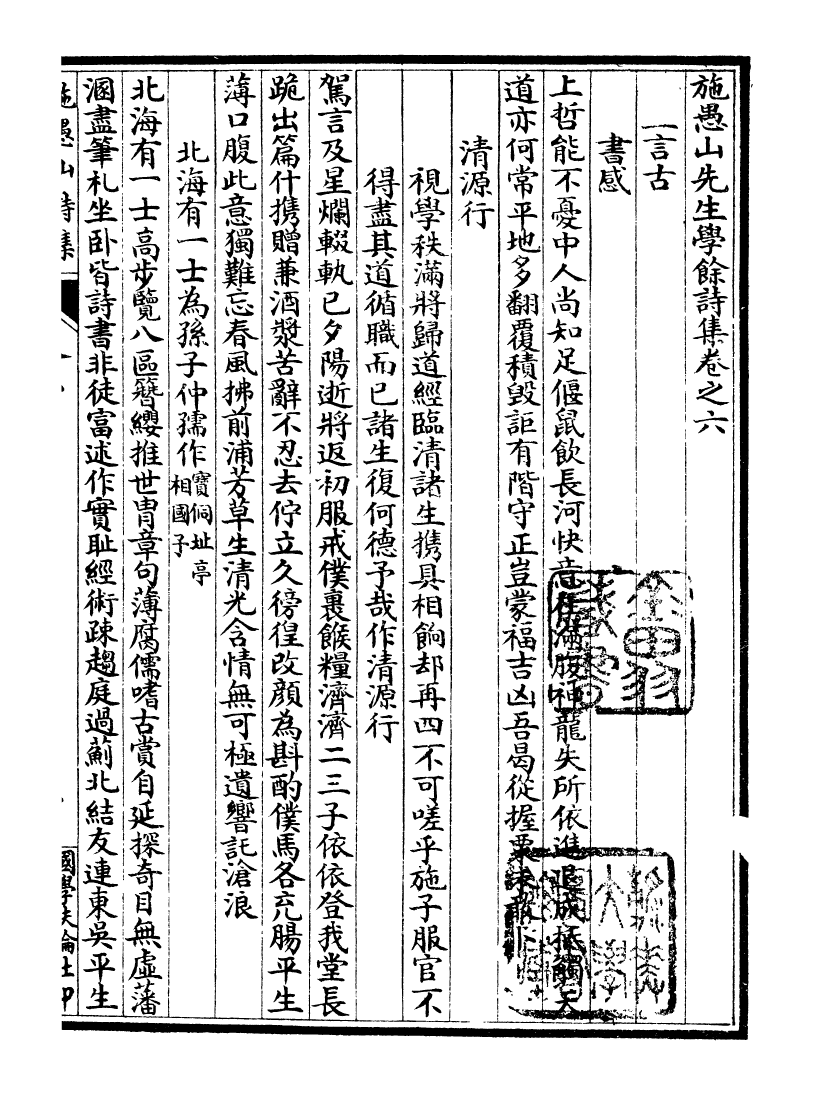 施愚山先生學餘詩集卷之六
一言古
書感
上哲能不憂中人尚知足偃鼠飲長河快意在滿腹神龍失所依進退成抵觸天
道亦何常平地多翻覆積毀詎有階守正豈蒙福吉凶吾曷從握粟未敢卜
清源行
視學秩滿將歸道經臨清諸生携具相餉却再四不可嗟乎施子服官不
得盡其道循職而已諸生復何德予哉作清源行
駕言及星爛輟執已夕陽逝將返初服戒僕裹餱糧濟濟二三子依依登我堂長
跪出篇什携贈兼酒漿苦辭不忍去佇立久徬徨改顔為斟酌僕馬各充腸平生
薄口腹此意獨難忘春風拂前浦芳草生清光含情無可極遺響託滄浪
北海有一士為孫子仲孺作寶侗址亭相國子
北海有一士高步覽八區簪纓推世胄章句薄腐儒嗜古賞自延探奇目無虛藩
溷盡筆札坐卧皆詩書非徒富述作實耻經術疎趨庭過薊北結友連東吳平生
施愚山詩集
國學扶輪社印